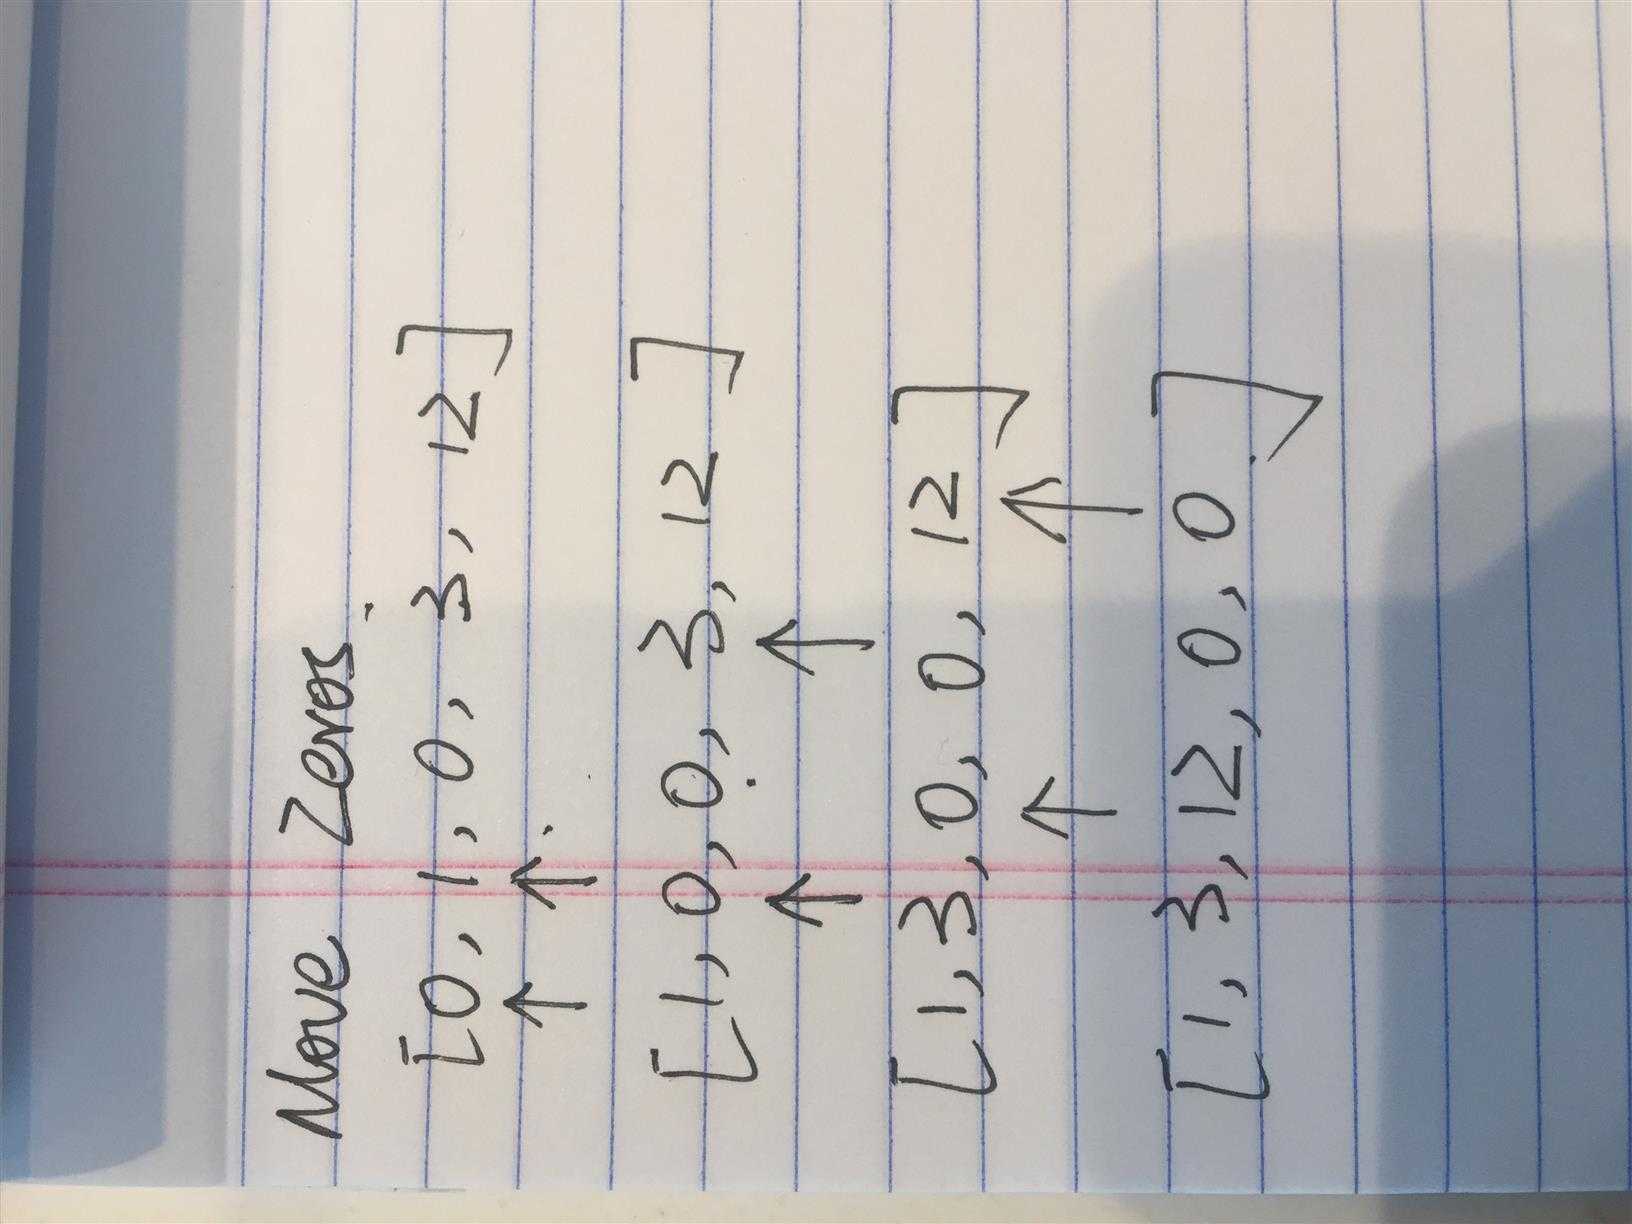 Move Zeros.
[0, 1, 0, 3, 12]
↑ ↑
[1, 0, 0, 3, 12]
↑ ↑
[1, 3, 0, 0, 12]
↑ ↑
[1, 3, 12, 0, 0]